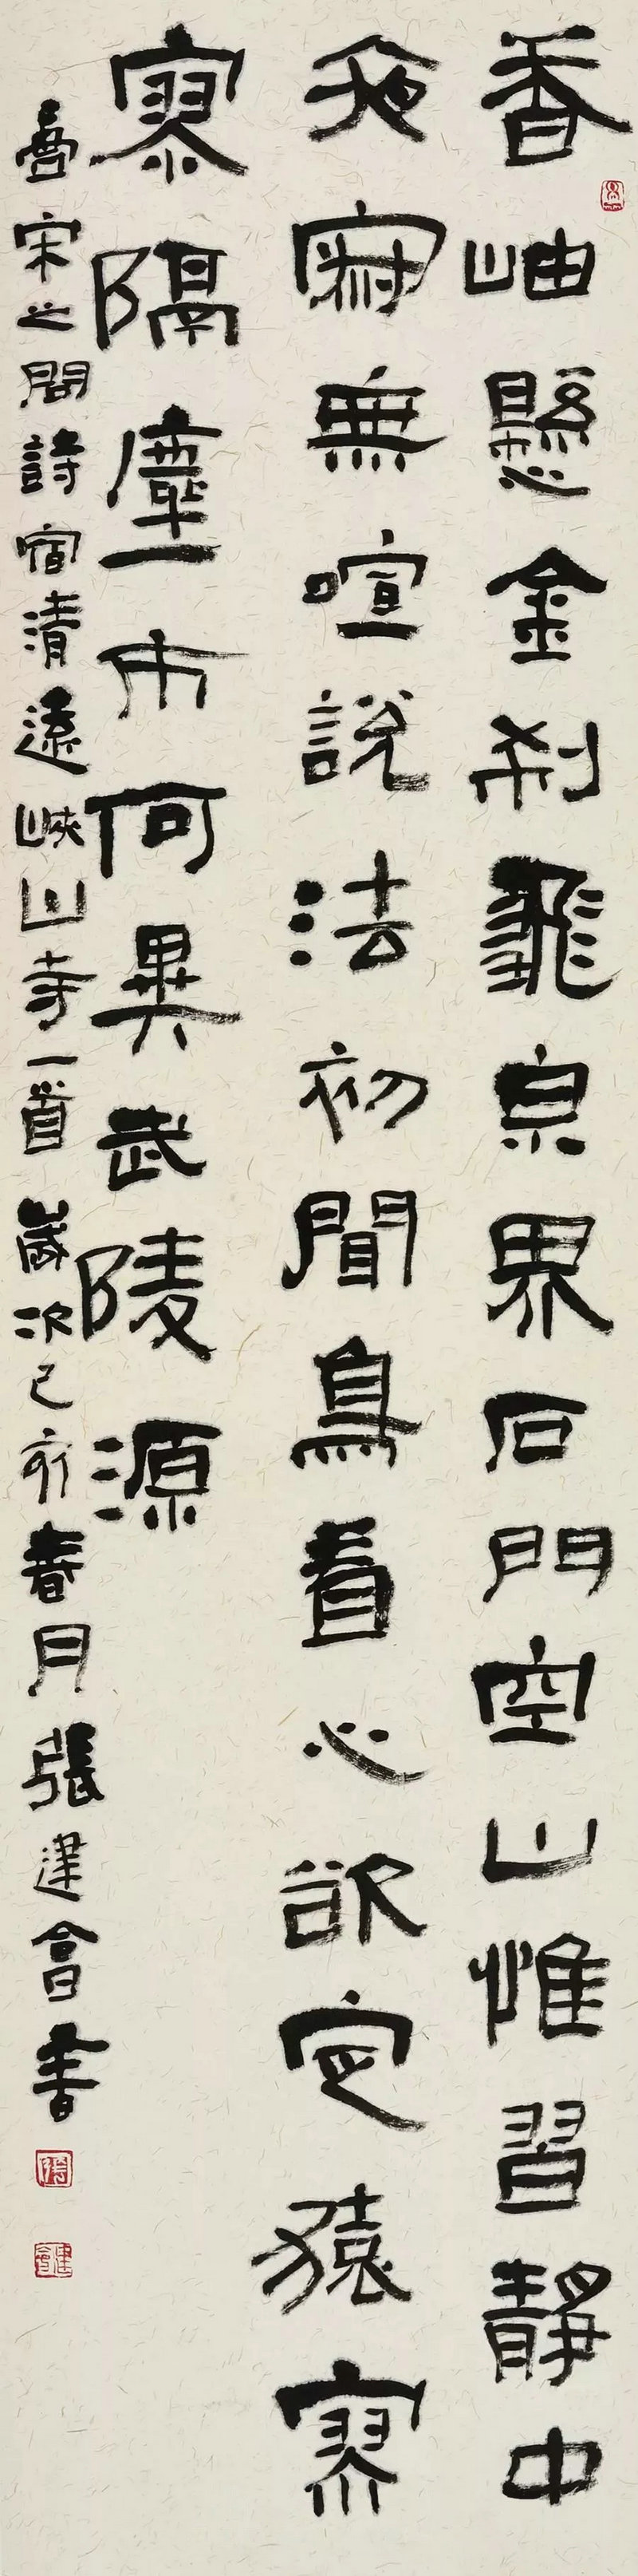 香岫懸金刹飛泉界石門空山惟習靜中
夜寂無喧說法初聞鳥看心欲定猿寥
寥隔塵市何異武陵源
唐宋之問詩宿清遠峽山寺一首歲次己亥春月張建會書